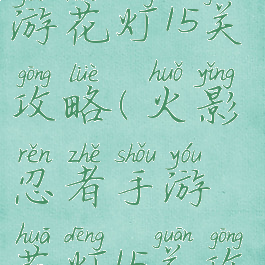 游花灯15关
gōng lüè huǒ yǐng
攻略(火影
rěn zhě shǒu yóu
忍者手游
huā dēng guān gōng
花灯15关攻